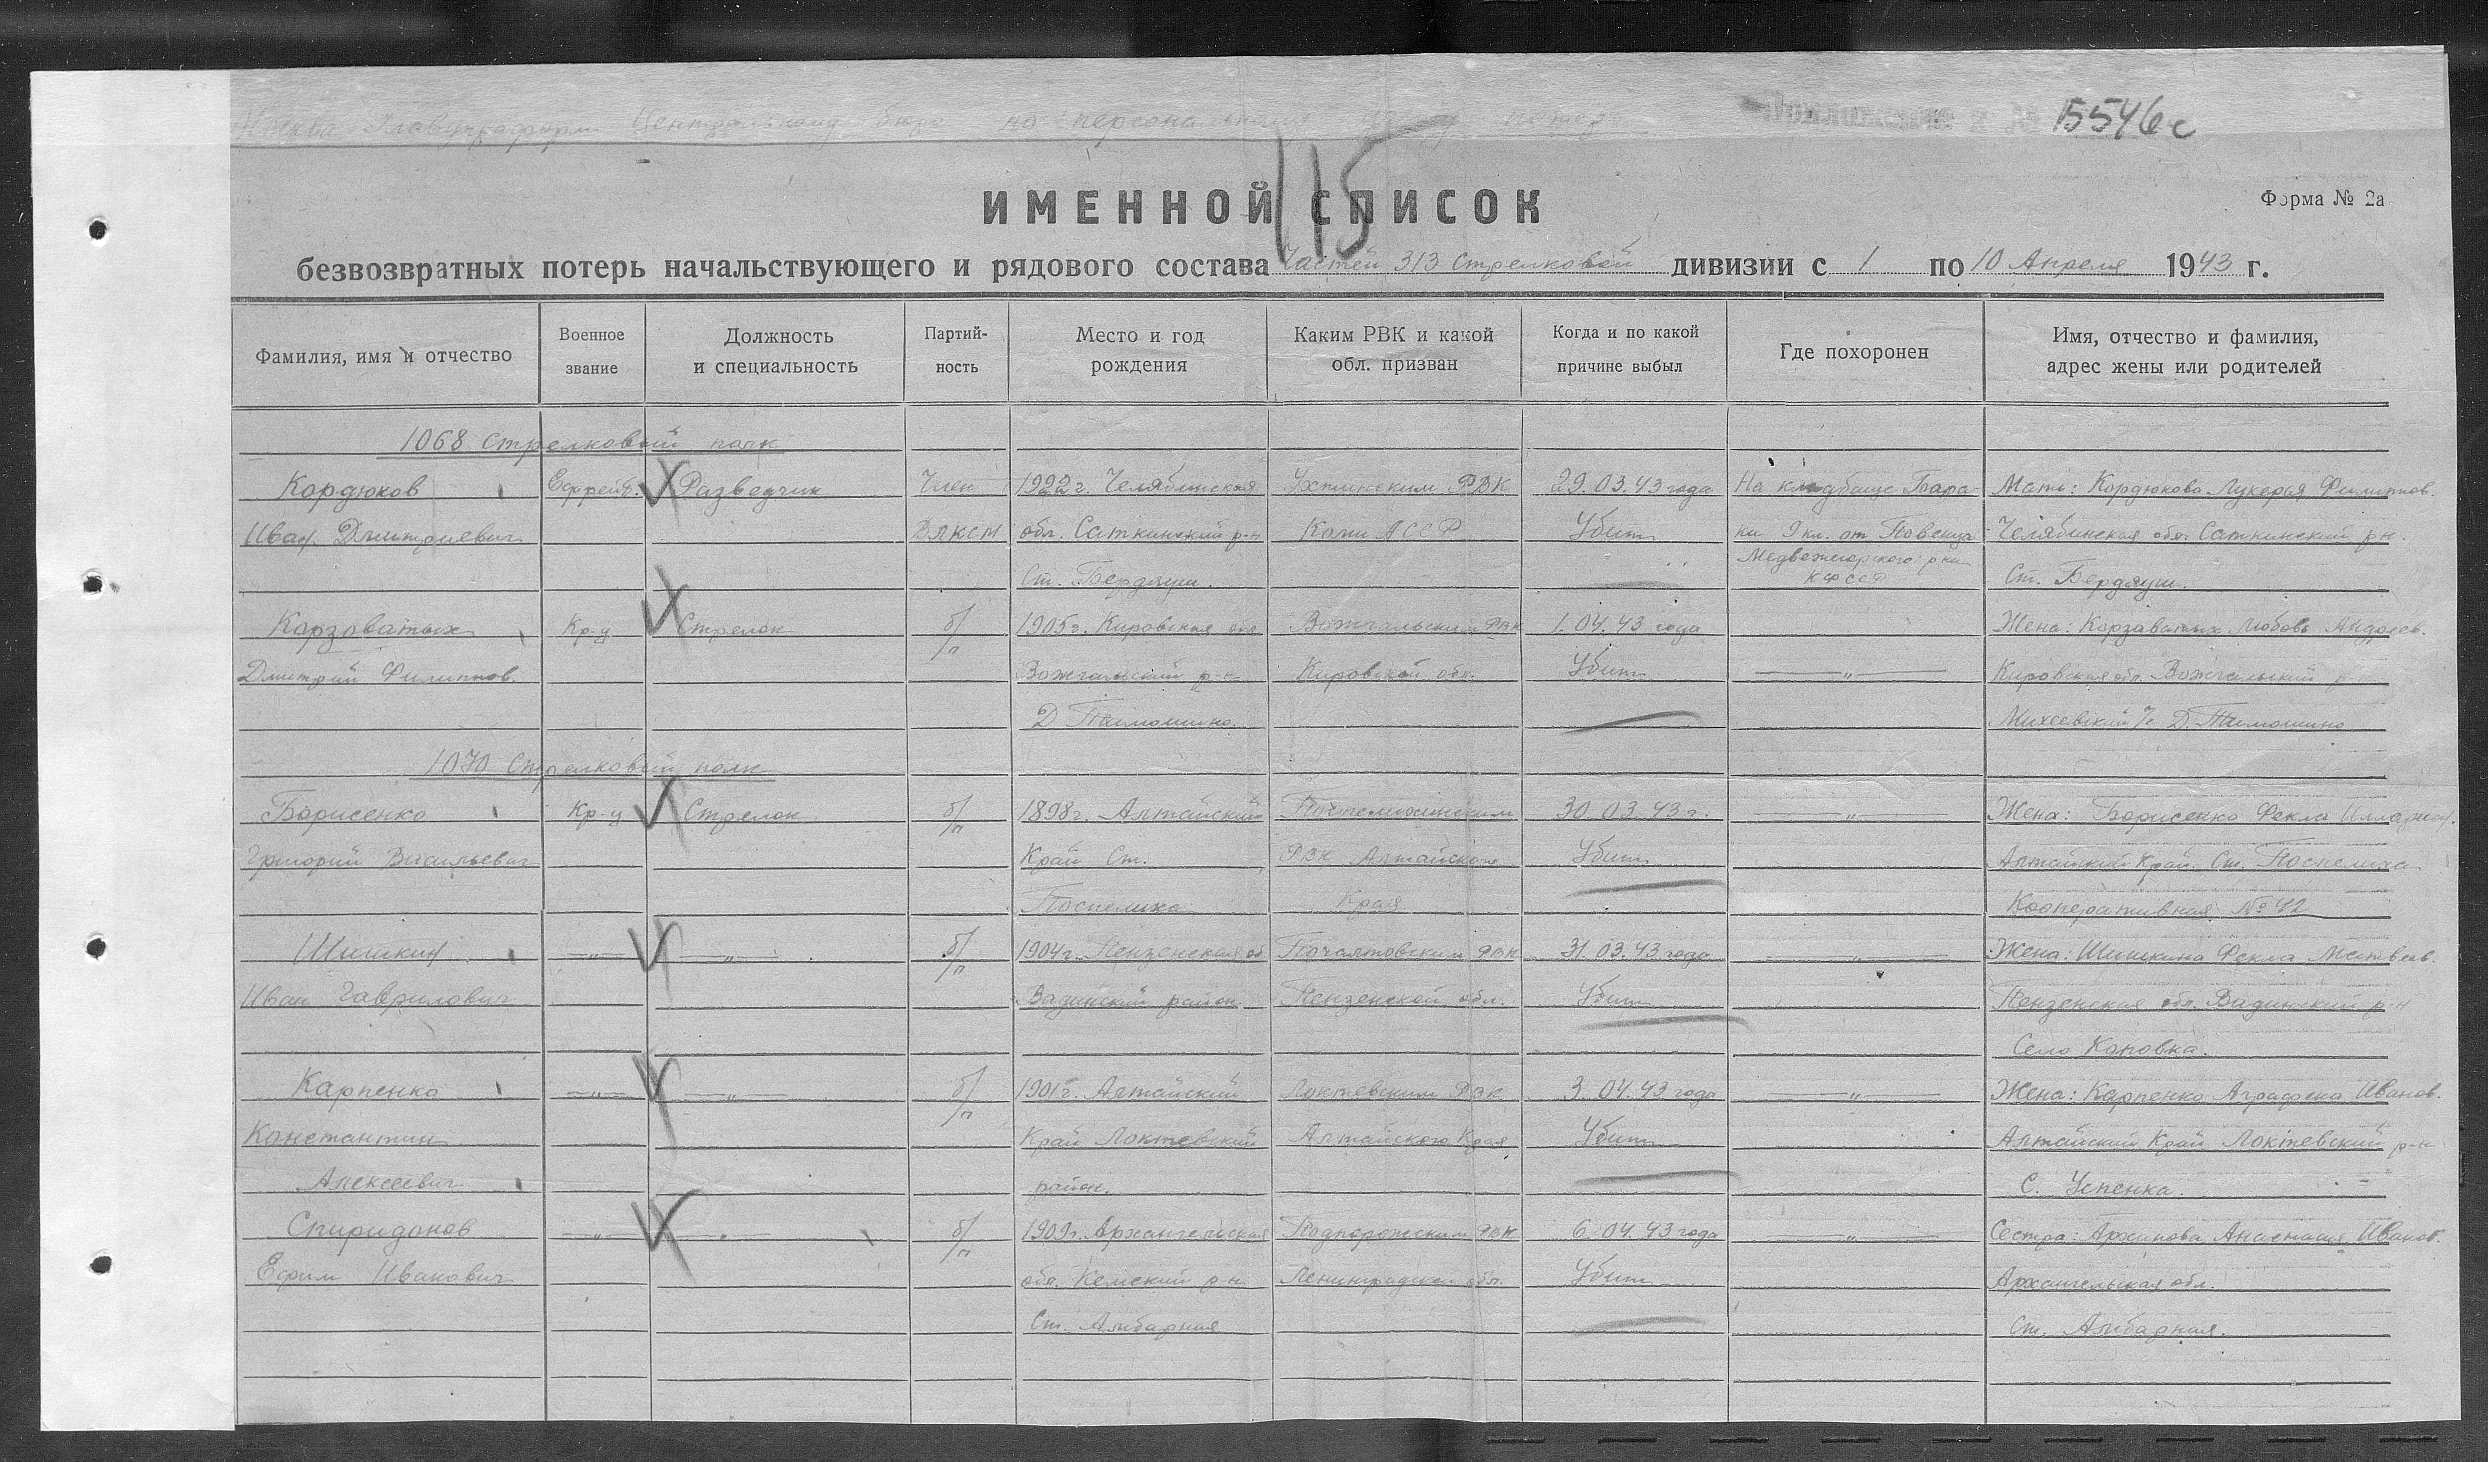 15546с
115
ИМЕННОЙ СПИСОК
Форма № 2а
безвозвратных потерь начальствующего и рядового состава Частей 313 Стрелковой дивизии с 1 по 10 Апреля 1943 г.
Фамилия, имя и отчество
Военное звание
Должность и специальность
Партий-ность
Место и год рождения
Каким РВК и какой обл. призван
Когда и по какой причине выбыл
Где похоронен
Имя, отчество и фамилия, адрес жены или родителей
1068 Стрелковый полк
Кордюков Ефрейт. Разведчик Член 1922г. Челябинская Ухтинским РВК 29.03.43 года На кладбище Бара- Мать: Кордюкова Лукерья Филиппов.
Иван Дмитриевич ВЛКСМ обл. Саткинский р-н Коми АССР Убит ки 9 км. от Повенца Челябинская обл. Саткинский р-н.
Ст. Бердяуш. Медвежегорского р-на КФССР Ст. Бердяуш.
Корзоватых Кр-ц Стрелок б/п 1905г. Кировская обл Вожгальским РВК 1.04.43 года —„— Жена: Корзаватых Любовь
Дмитрий Филиппов. Вожгальский р-н Кировской обл. Убит Кировская обл. Вожгальский р
Д. Тимошино. Михеевский с/с Д. Тимошино
1070 Стрелковый полк
Борисенко Кр-ц Стрелок б/п 1898г. Алтайский Поспелихинским 30.03.43 г. —„— Жена: Борисенко Фекла
Григорий Васильевич Край Ст. РВК Алтайского Убит Алтайский Край Ст. Поспелиха
Поспелиха Края Кооперативная №42
Шишкин —„— —„— б/п 1904г. Пензенская об РВК 31.03.43 года —„— Жена: Шишкина Фекла Матвеев.
Иван Гаврилович Вадинский район Пензенской обл. Убит Пензенская обл. Вадинский р-н
Село Коповка.
Карпенко —„— —„— б/п 1901г. Алтайский Локтевским РВК 3.04.43 года —„— Жена: Карпенко Аграфена Иванов.
Константин Край Локтевский Алтайского Края Убит Алтайский Край Локтевский р-н
Алексеевич район. С. Успенка.
Спиридонов —„— —„— б/п 1909г. Архангельская Подпорожским РВК 6.04.43 года —„— Сестра: Архипова Анастасия Иванов.
Ефим Иванович обл. Кемский р-н Ленинградской обл. Убит Архангельская обл.
Ст. Амбарная Ст. Амбарная.